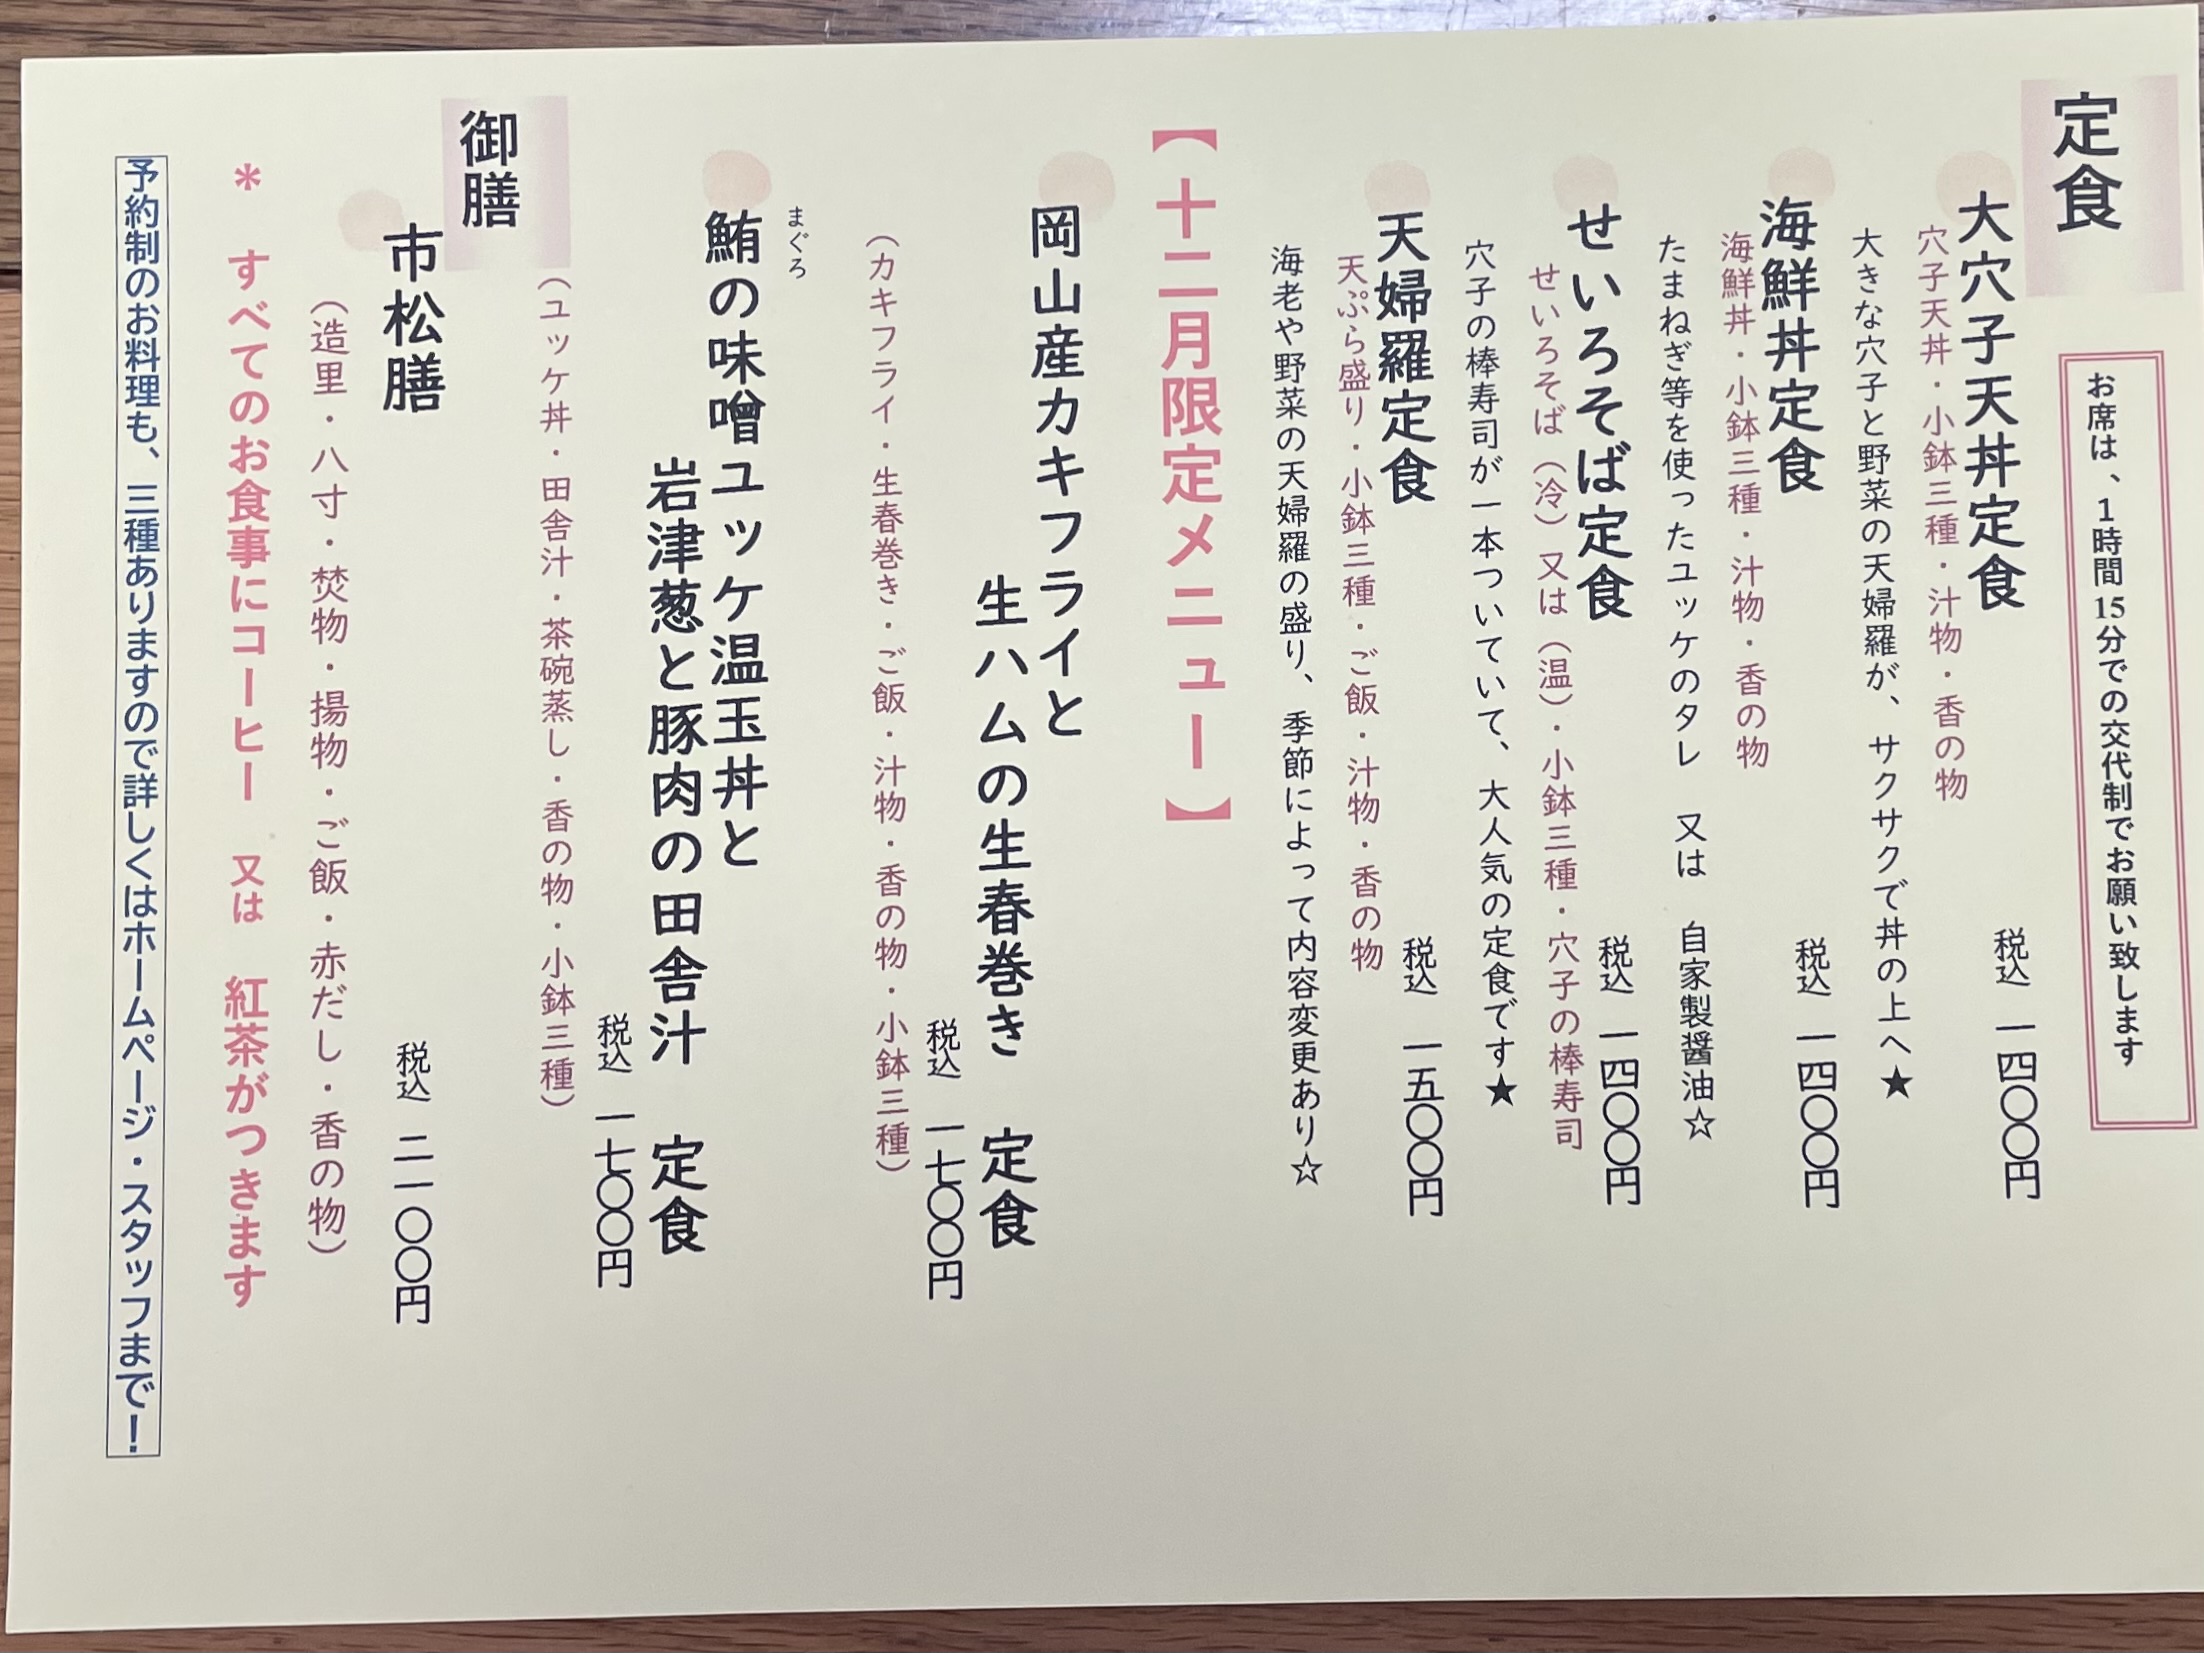 定食
お席は、1時間15分での交代制でお願い致します
大穴子天丼定食
税込 一四〇〇円
穴子天丼・小鉢三種・汁物・香の物
大きな穴子と野菜の天婦羅が、サクサクで丼の上へ★
海鮮丼定食
税込 一四〇〇円
海鮮丼・小鉢三種・汁物・香の物
たまねぎ等を使ったユッケのタレ 又は 自家製醤油☆
せいろそば定食
税込 一四〇〇円
せいろそば（冷）又は（温）・小鉢三種・穴子の棒寿司
穴子の棒寿司が一本ついていて、大人気の定食です★
天婦羅定食
税込 一五〇〇円
天ぷら盛り・小鉢三種・ご飯・汁物・香の物
海老や野菜の天婦羅の盛り、季節によって内容変更あり☆
【十二月限定メニュー】
岡山産カキフライと
生ハムの生春巻き 定食
税込 一七〇〇円
（カキフライ・生春巻き・ご飯・汁物・香の物・小鉢三種）
まぐろ
鮪の味噌ユッケ温玉丼と
岩津葱と豚肉の田舎汁 定食
税込 一七〇〇円
（ユッケ丼・田舎汁・茶碗蒸し・香の物・小鉢三種）
御膳
市松膳
税込 二一〇〇円
（造里・八寸・焚物・揚物・ご飯・赤だし・香の物）
＊ すべてのお食事にコーヒー 又は 紅茶がつきます
予約制のお料理も、三種ありますので詳しくはホームページ・スタッフまで！